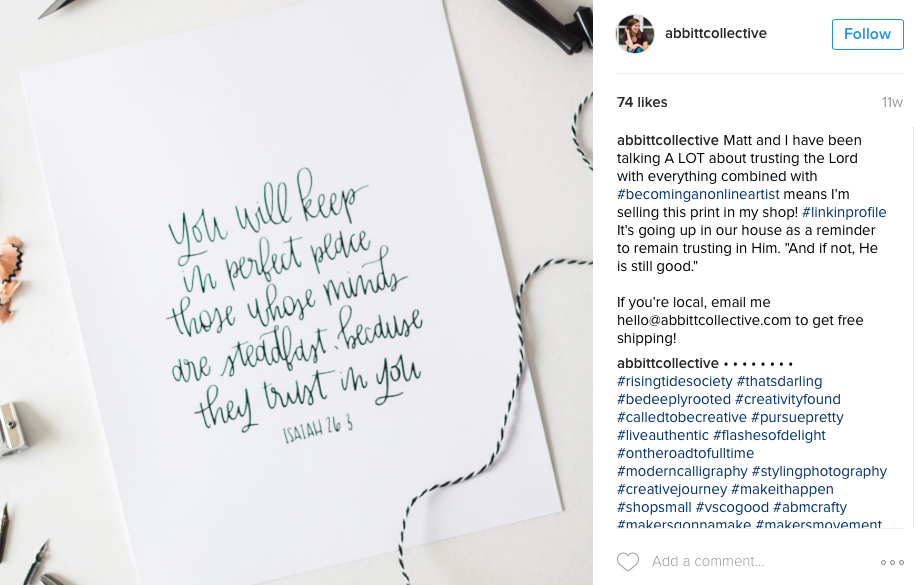 You will keep
in perfect peace
those whose minds
are steadfast, because
they trust in you
ISAIAH 26 3
abbittcollective
Follow
74 likes
11w
abbittcollective Matt and I have been
talking A LOT about trusting the Lord
with everything combined with
#becominganonlineartist means I'm
selling this print in my shop! #linkinprofile
It's going up in our house as a reminder
to remain trusting in Him. "And if not, He
is still good."
If you're local, email me
hello@abbittcollective.com to get free
shipping!
abbittcollective • • • • • • • •
#risingtidesociety #thatsdarling
#bedeeplyrooted #creativityfound
#calledtobecreative #pursuepretty
#liveauthentic #flashesofdelight
#ontheroadtofulltime
#moderncalligraphy #stylingphotography
#creativejourney #makeithappen
#shopsmall #vscogood #abmcrafty
#makersgonnamake #makersmovement
Add a comment...